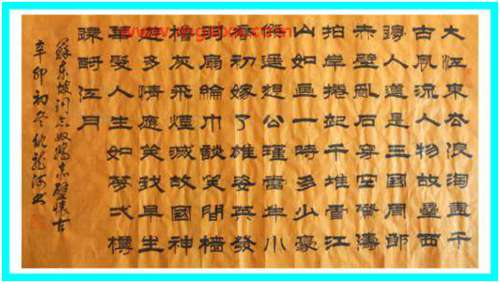 大江東去浪淘盡千
古風流人物故壘西
邊人道是三國周郎
赤壁亂石穿空驚濤
拍岸捲起千堆雪江
山如畫一時多少豪
傑遙想公瑾當年小
喬初嫁了雄姿英發
羽扇綸巾談笑間檣
櫓灰飛煙滅故國神
遊多情應笑我早生
華髮人生如夢一樽
還酹江月
蘇東坡詞念奴嬌赤壁懷古
辛卯初冬